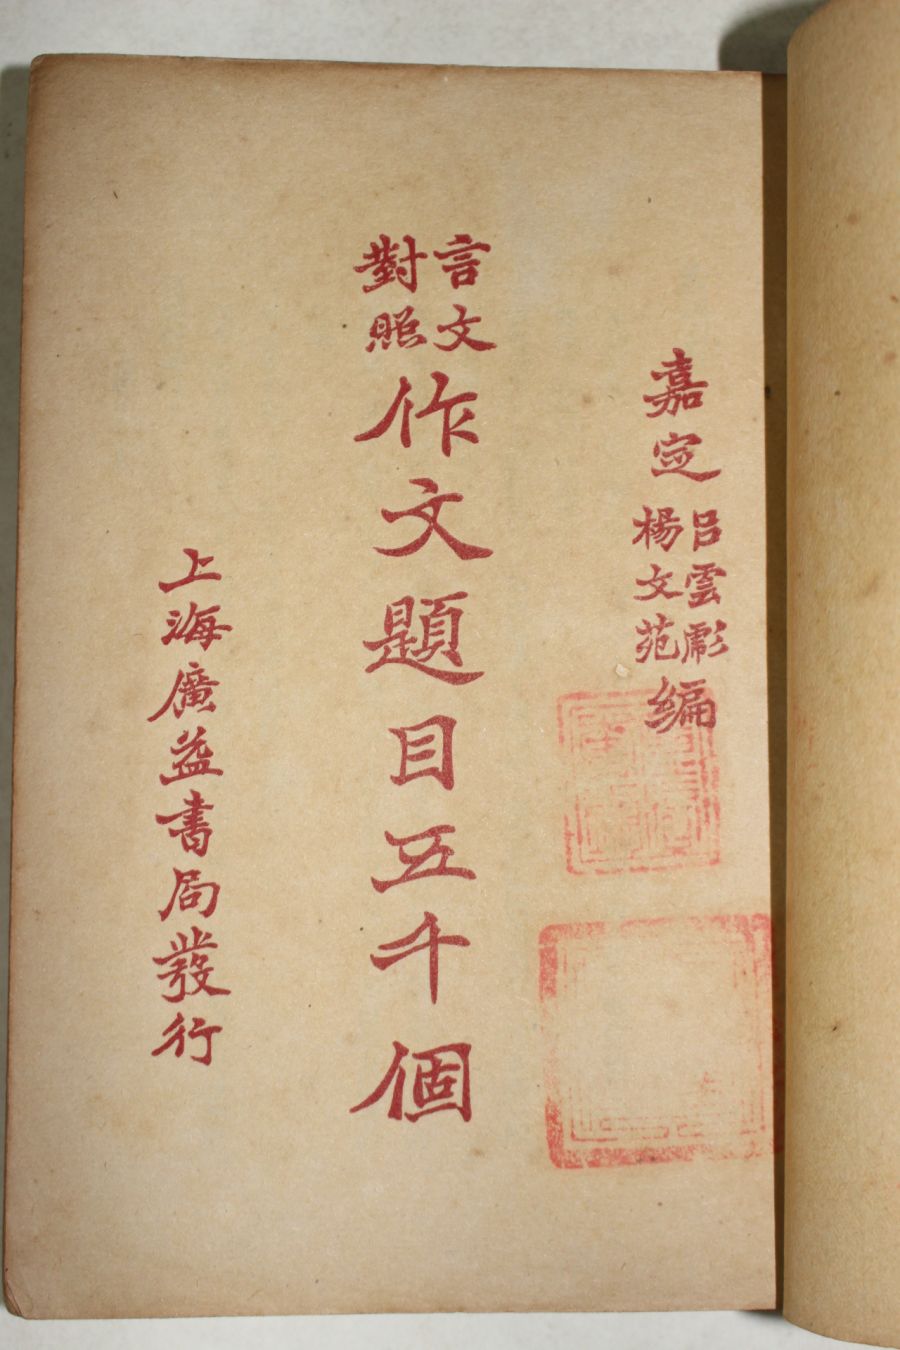 嘉定 呂雲彪 楊文苑 編
言文對照 作文題目五千個
上海廣益書局發行